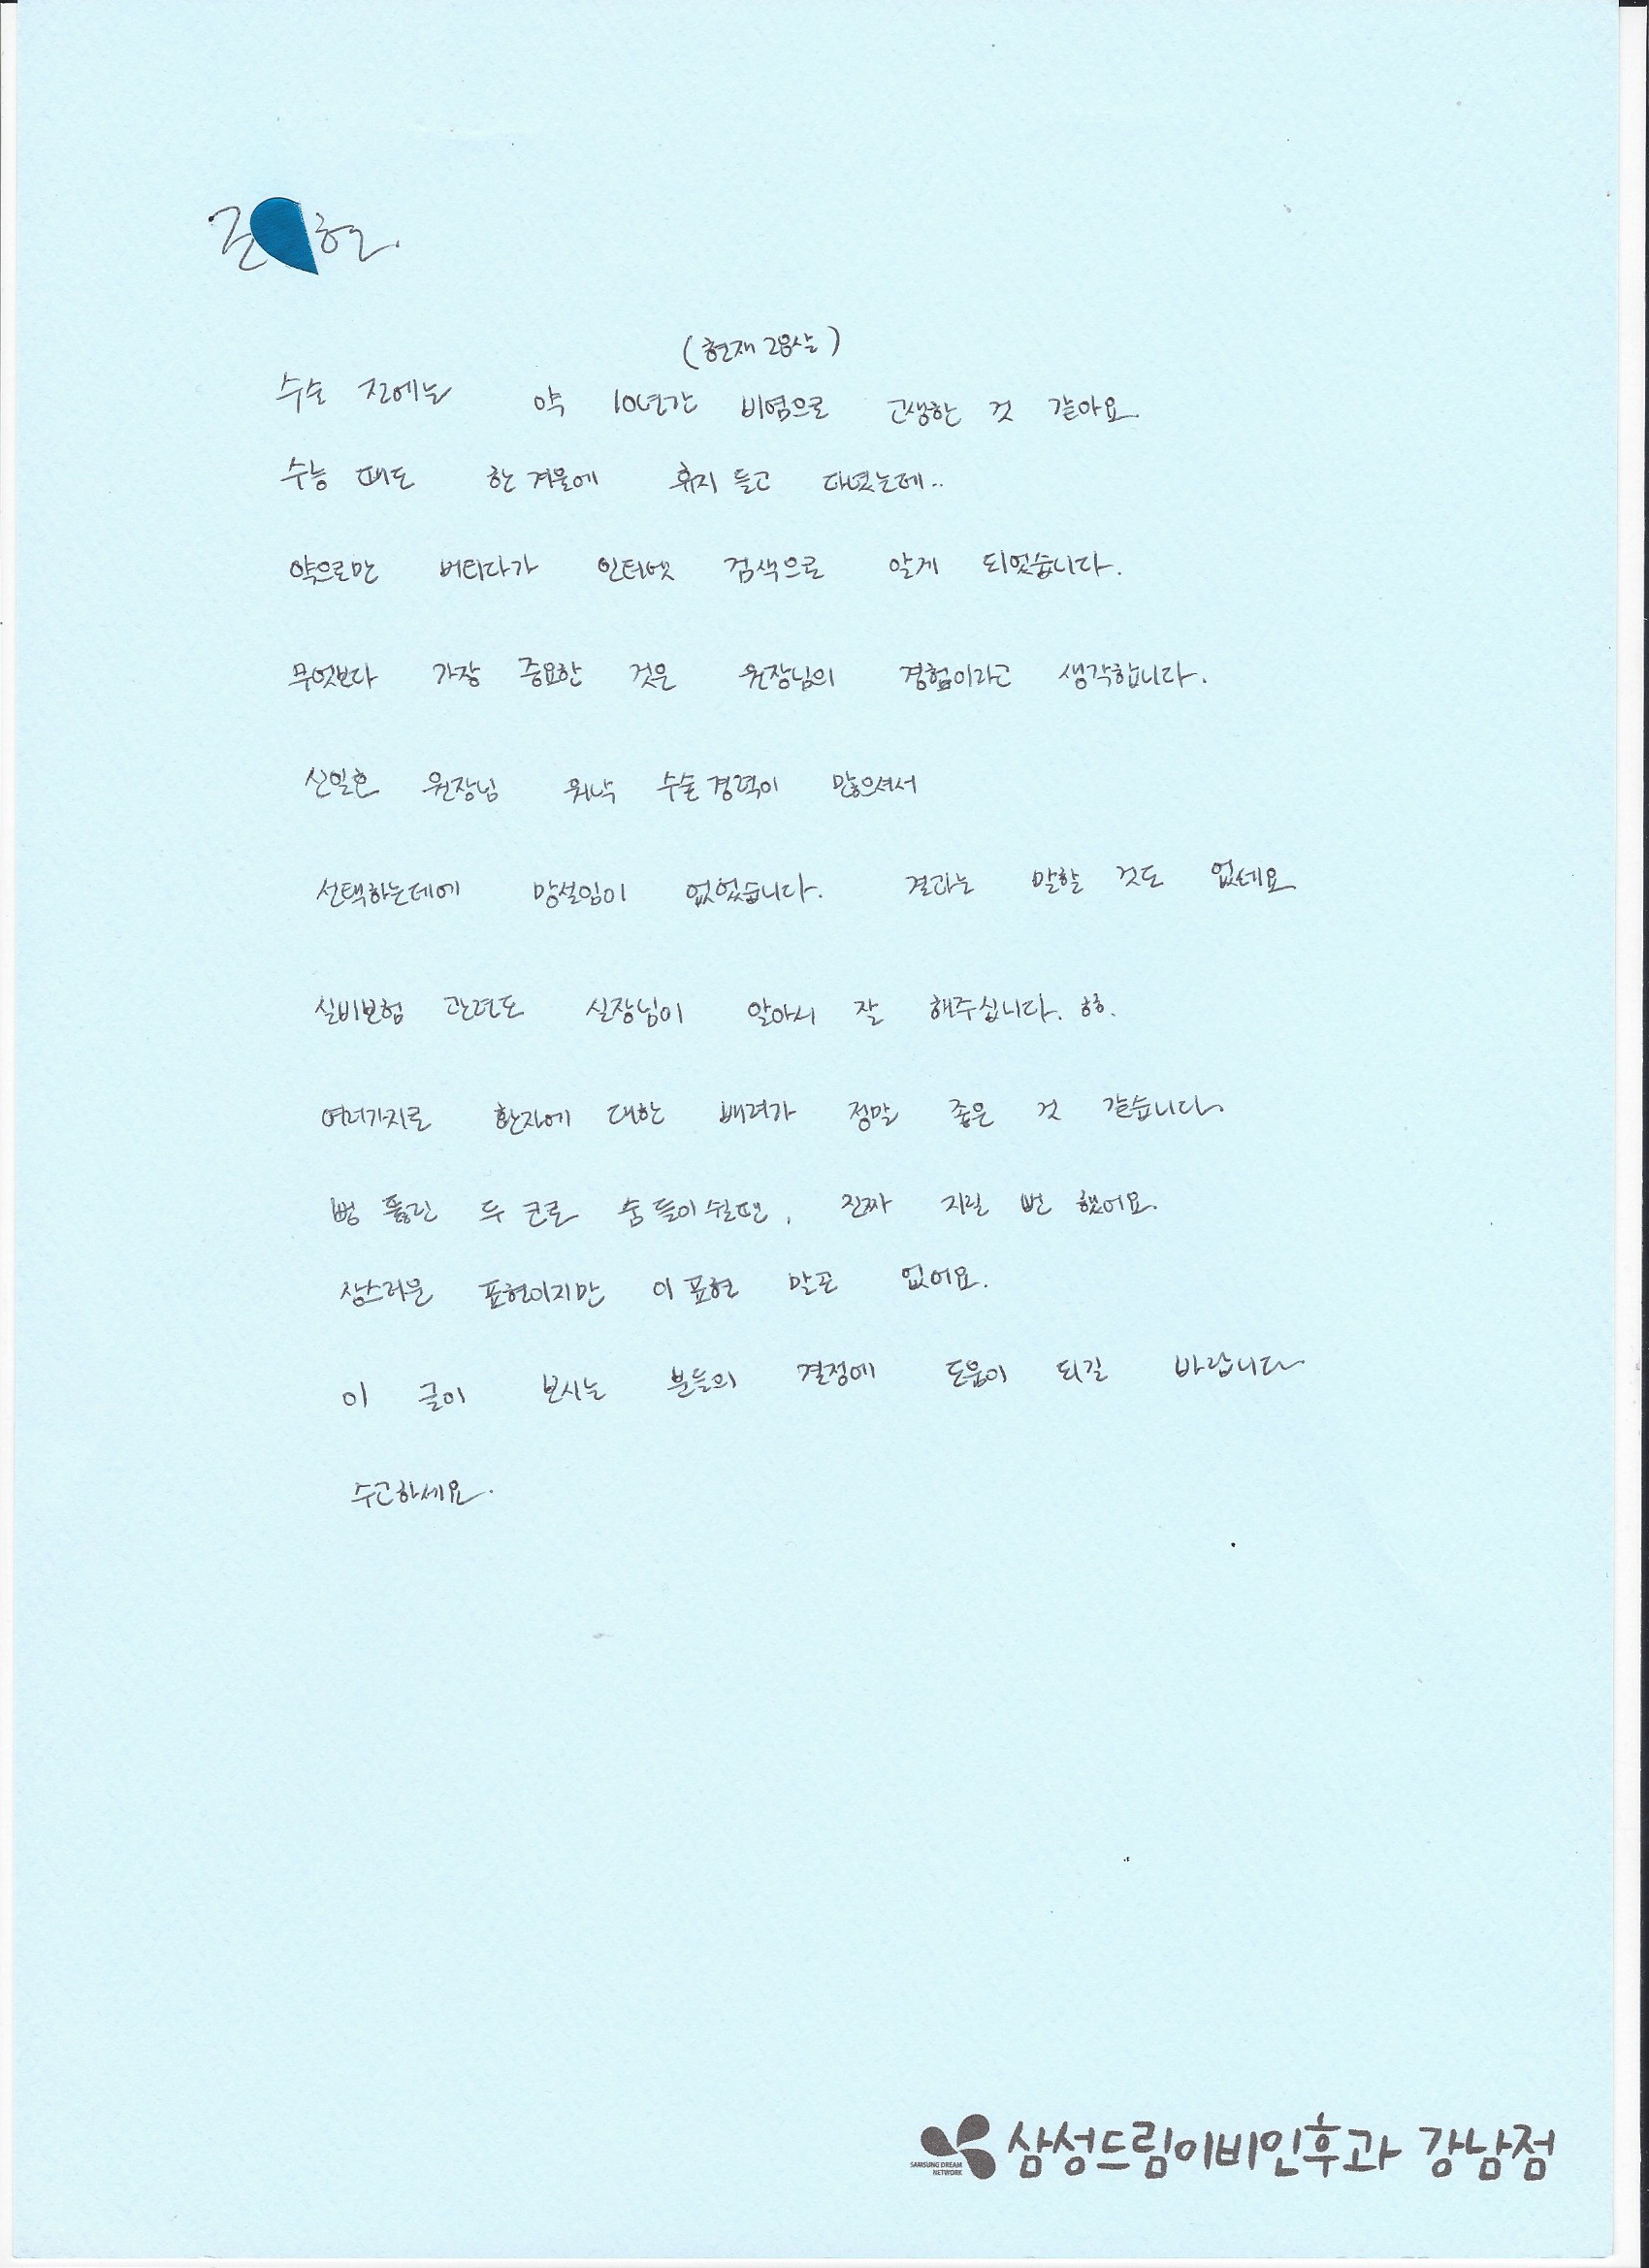 (현재 28살)
수술 전에는 약 10년간 비염으로 고생한 것 같아요
수능 때도 한 겨울에 휴지 들고 다녔는데..
약으로만 버티다가 인터넷 검색으로 알게 되었습니다.
무엇보다 가장 중요한 것은 원장님의 경험이라고 생각합니다.
신일호 원장님 워낙 수술경력이 많으셔서
선택하는데에 망설임이 없었습니다. 결과는 말할 것도 없네요
실비보험 관련도 실장님이 알아서 잘 해주십니다. 하하.
여러가지로 환자에 대한 배려가 정말 좋은 것 같습니다.
뻥 뚫린 두 코로 숨 들이쉴땐, 진짜 지릴 번 했어요.
상스러운 표현이지만 이 표현 말곤 없어요.
이 글이 보시는 분들의 결정에 도움이 되길 바랍니다
수고하세요.
SAMSUNG DREAM NETWORK 삼성드림이비인후과 강남점